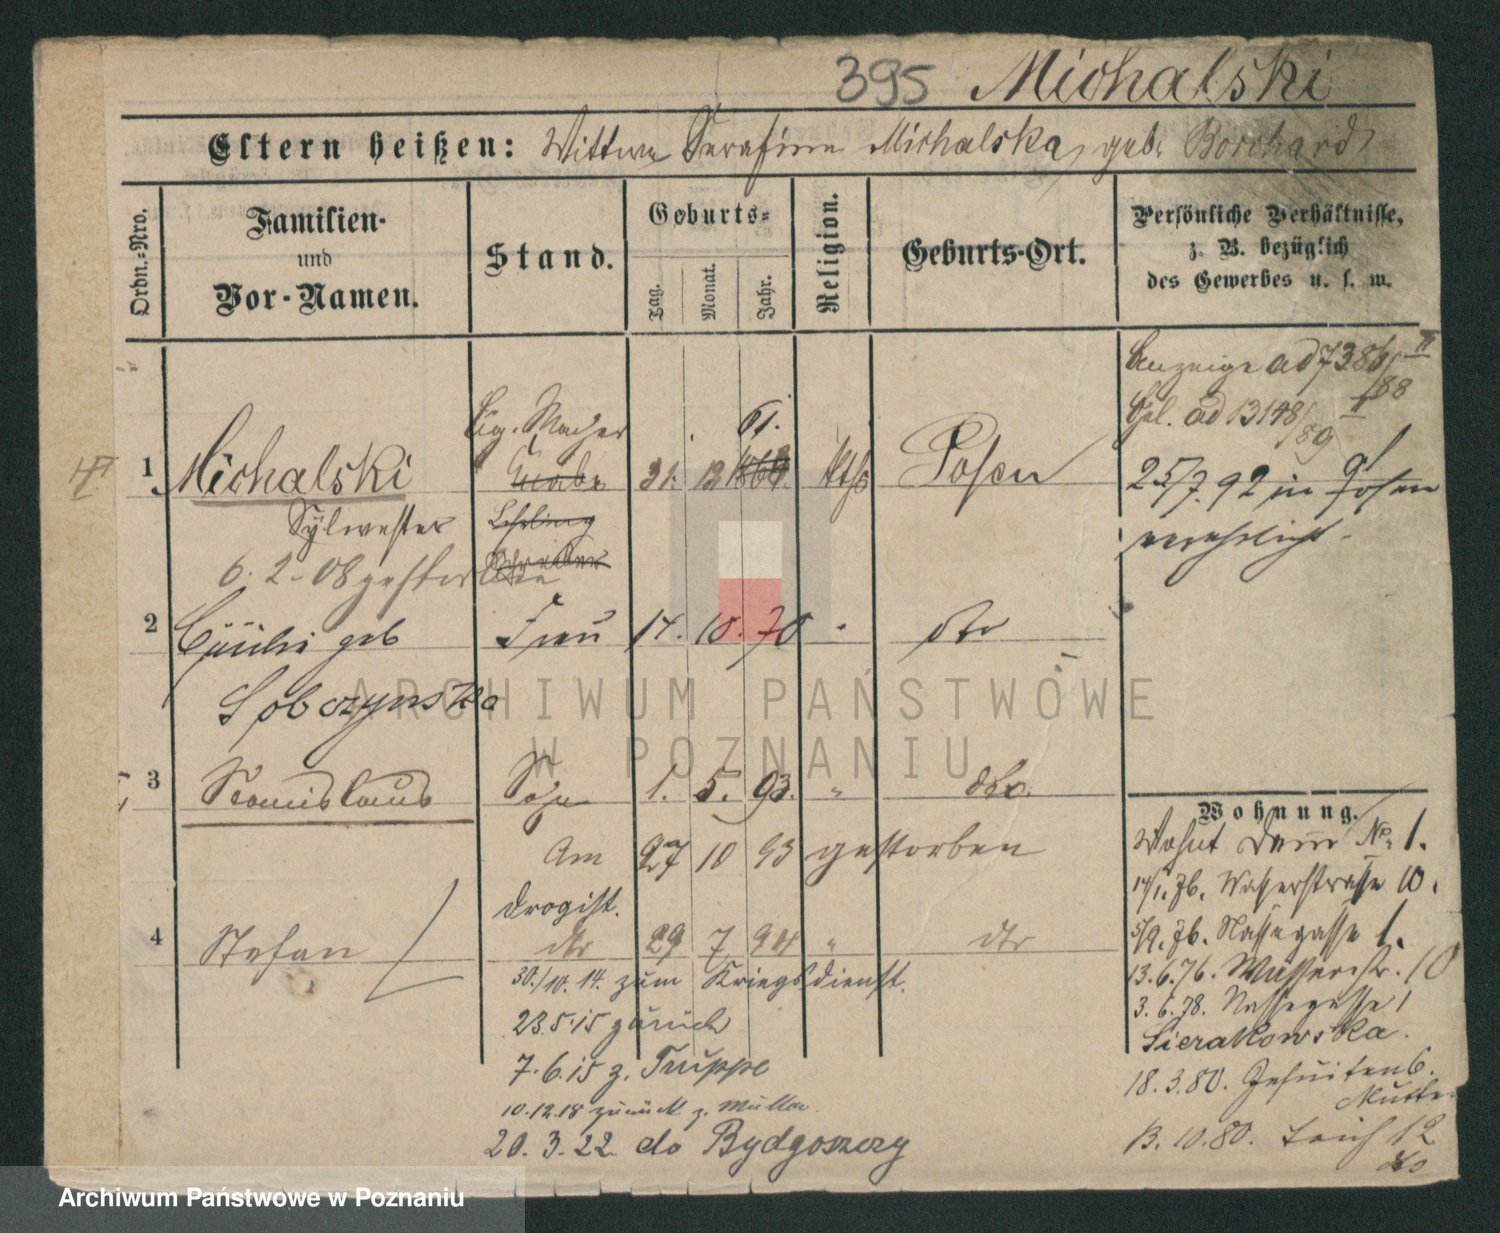 395 Michalski
Eltern heißen: Wittwe Serafine Michalska, geb. Borchard
Ordn.-Nro.
Familien-
und
Vor-Namen.
Stand.
Geburts-
Tag.
Monat.
Jahr.
Religion.
Geburts-Ort.
Persönliche Verhältnisse,
z. B. bezüglich
des Gewerbes u. s. w.
Anzeige ad 738
/88
ad 13148/89
Cig. Macher 61.
1 Michalski Knabe 31. 12 kth Posen
25/7. 92 in Posen
verehelicht.
Sylvester Lehrling
Schreiber
6. 2. 08 gestorben
2 Cäcilie geb Frau 14. 10. 70 " dto
Sobczynska
3 Stanislaus Sohn 1. 5. 93. " dto.
Am 27 10 93 gestorben
Drogist.
4 Stefan dto 29 7 94 " dto
30./10. 14. zum Kriegsdienst.
23.5.15 zurück
7.6.15 z. Truppe
10.12.18 zurück z. Mutter
20. 3. 22 do Bydgoszczy
Wohnung.
Wohnt Dom No. 1.
14/1. 76. Wasserstrasse 10.
5/9. 76. Nassegasse 1.
13.6.76. Wasserstr. 10
3. 6. 78. Nassegasse 1
Sierakowska.
18. 3. 80. Jesuiten 6.
Mutter
13. 10. 80. Teich 12
do
ARCHIWUM PAŃSTWOWE
W POZNANIU
Archiwum Państwowe w Poznaniu